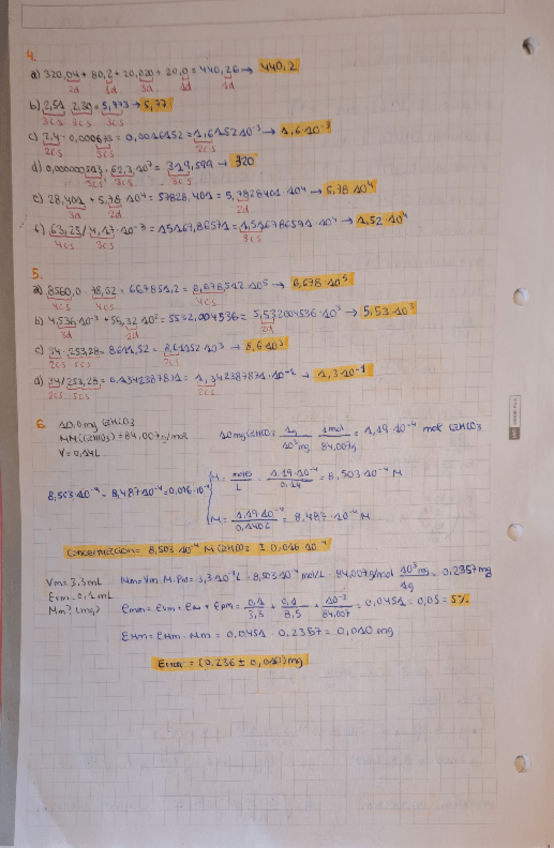 4.
a) 320,04 + 80,2 + 20,020 + 20,0 = 440,26 → 440,2
2d 1d 3d 1d 1d
b) 2,51 · 2,30 = 5,773 → 5,77
3cs 3cs 3cs
c) 2,4 · 0,000673 = 0,0016152 = 1,6152·10⁻³ → 1,6·10⁻³
2cs 3cs 2cs
d) 0,00000000513 · 62,3·10⁷ = 319,599 → 320
3cs 3cs 3cs
e) 28,401 + 5,78·10⁴ = 57828,401 = 5,7828401·10⁴ → 5,78·10⁴
3d 2d 2d
f) 63,25 / 4,17·10⁻³ = 15167,86571 = 1,516786591·10⁴ → 1,52·10⁴
4cs 3cs 3cs
5.
a) 8560,0 · 78,02 = 667851,2 = 6,678512·10⁵ → 6,678·10⁵
4cs 4cs 4cs
b) 4,536·10⁻³ + 55,32·10² = 5532,004536 = 5,532004536·10³ → 5,53·10³
3d 2d 2d
c) 34 · 253,28 = 8611,52 = 8,61152·10³ → 8,6·10³
2cs 5cs 2cs
d) 34 / 253,28 = 0,1342387871 = 1,342387871·10⁻¹ → 1,3·10⁻¹
2cs 5cs 2cs
6
10,0 mg
MM = 84,007 g/mol
V = 0,14L
10 mg · 1g / 10³ mg · 1mol / 84,007g = 1,19·10⁻⁴ mol
M = moles / L = 1,19·10⁻⁴ / 0,14 = 8,503·10⁻⁴ M
8,503·10⁻⁴ - 8,487·10⁻⁴ = 0,016·10⁻⁴
M = 1,19·10⁻⁴ / 0,1402 = 8,487·10⁻⁴ M
Concentración = 8,503·10⁻⁴ M ± 0,016·10⁻⁴
Vm = 3,3mL
Nm = Vm · M · Pm = 3,3·10⁻³L · 8,503·10⁻⁴ mol/L · 84,007g/mol · 10³mg / 1g = 0,2357mg
0,1 mL
Nm? (mg)
0,1 / 3,3 + 0,1 / 8,5 + 10⁻³ / 84,007 = 0,0451 = 0,05 = 5%
= 0,0451 · 0,2357 = 0,010 mg
Error = (0,236 ± 0,010) mg